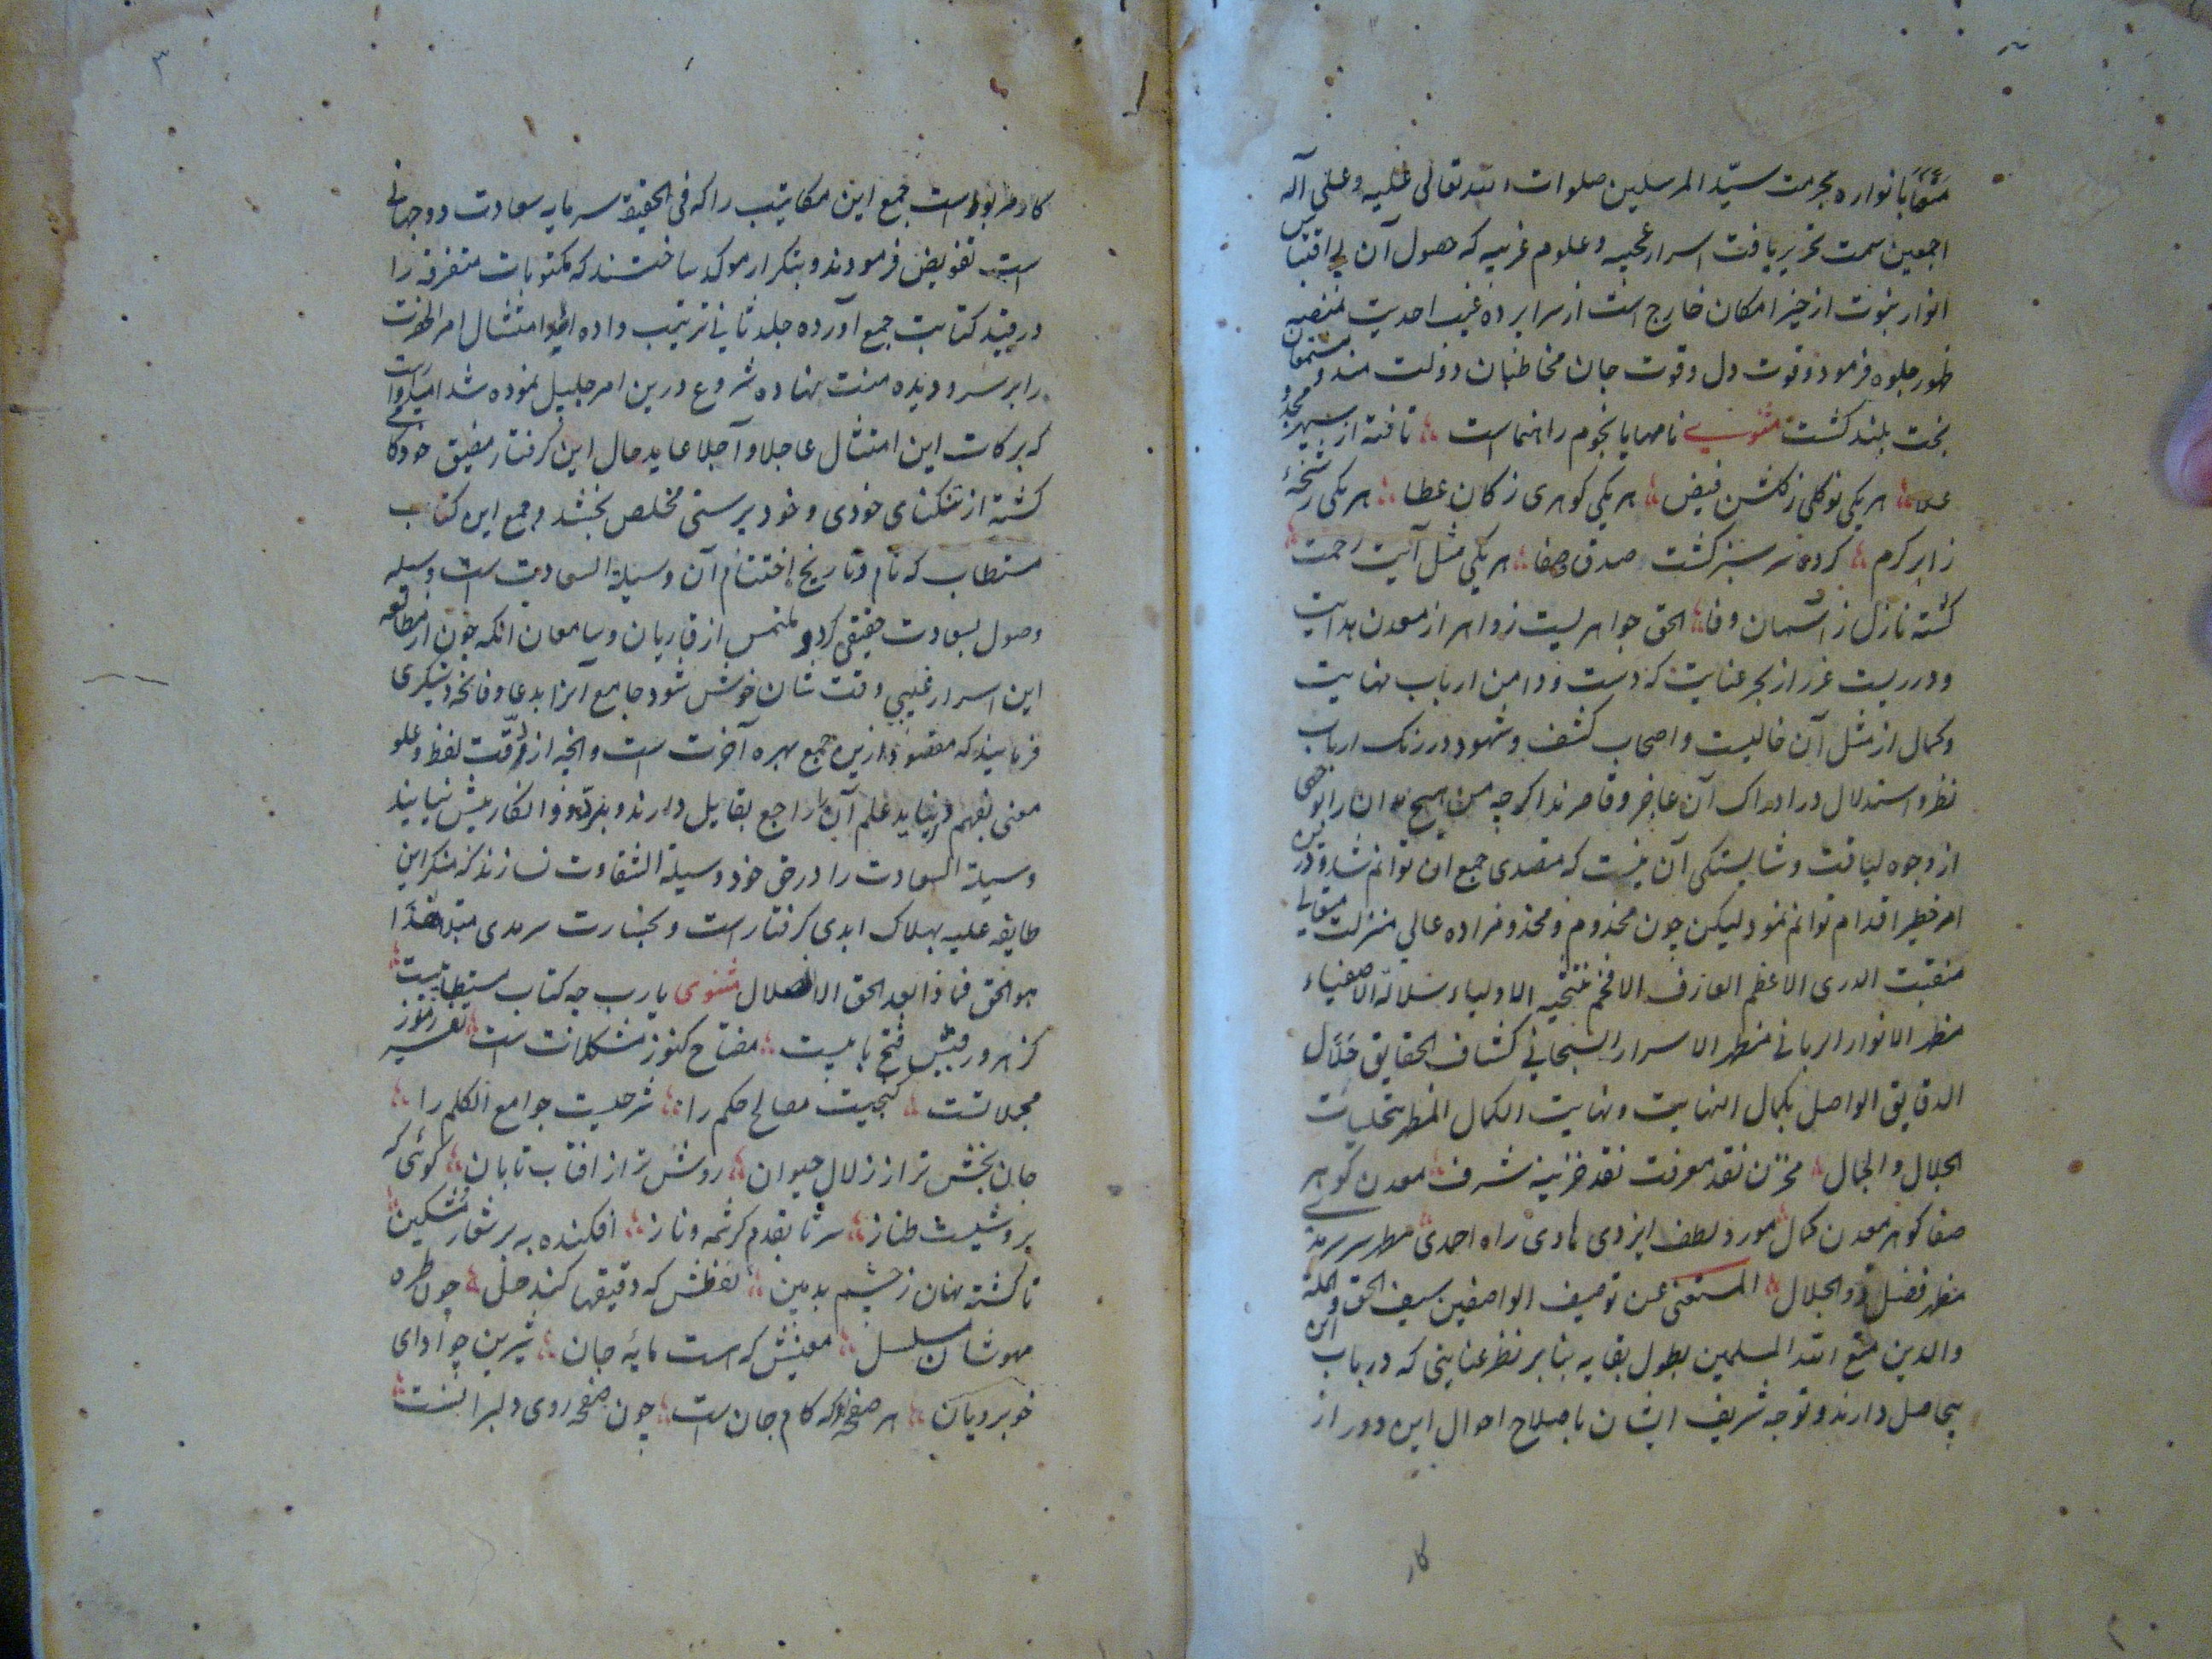 متعنا بانواره بحرمت سید المرسلین صلوات الله تعالی علیه و علی آله
اجمعین سمت تحریر یافت اسرار عجیبه و علوم غریبه که حصول آن بی اقتباس
انوار نبوت از حیز امکان خارج است از سرابرده غیب احدیت بمنصه
ظهور جلوه فرمود و قوت دل و قوت جان مخاطبان دولت مند و مستمعان
بخت بلند کشت مثنوی نامهایا نجوم راهنماست تافته از سپهر مجد و
علا هر یکی نو کلی ز کلشن فیض هر یکی کوهری ز کان عطا هر یکی رشحهٔ
ز ابر کرم کرده سرسبز کشت صدق و صفا هر یکی مثل آیت رحمت
کشته نازل ز آسمان وفا الحق جواهریست زواهر از معدن هدایت
و درریست غرر از بحر عنایت که دست و دامن ارباب نهایت
و کمال از مثل آن خالیست و اصحاب کشف و شهود در رنک ارباب
نظر و استدلال در ادراک آن عاجز و قاصرند اکرچه من هیچ مدان را بوجهی
از وجوه لیاقت و شایستکی آن نیست که متصدی جمع ان توانم شد و درین
امر خطیر اقدام توانم نمود لیکن چون مخدوم و مخدومزاده عالی منزلت متعالی
منقبت الدری الاعظم العارف الافخم نتیجه الاولیاء سلالة الاصفیاء
مظهر الانوار الربانی مظهر الاسرار السبحانی کشاف الحقایق حلال
الدقایق الواصل بکمال النهایت و نهایت الکمال المظهر بتجلیات
الجلال و الجمال مخزن نقد معرفت نقد خزینه شرف معدن کوهر
صفا کوهر معدن کمال مورد لطف ایزدی هادی راه احمدی مظهر سر سرمد
مظهر فضل ذو الجلال المستغنی عن توصیف الواصفین سیف الحق و الملة
والدین متع الله المسلمین بطول بقایه بنابر نظر عنایتی که در باب این
بیحاصل دارند و توجه شریف ایشان باصلاح احوال این دور از
کار
کار مربوط است جمع این مکاتیب را که فی الحقیقة سرمایه سعادت دو جهانی
است تفویض فرمودند و بتکرار موکد ساختند که مکتوبات متفرقه را
در قید کتابت جمع آورده جلد ثانی ترتیب داده اید امتثال امر الحضرت
را بر سر و دیده منت نهاده شروع درین امر جلیل نموده شد امیدواست
که برکات این امتثال عاجلا و آجلا عاید حال این کرفتار مضیق خودکامی
کشته از تنکنای خودی و خودپرستی مخلص بخشد و جمع این کتاب
مستطاب که نام و تاریخ اختتام آن وسیلة السعادت است وسیله
وصول بسعادت حقیقی کردد ملتمس از قاریان و سامعان انکه چون از مطالعه
این اسرار غیبی وقت شان خوش شود جامع آنرا بدعا و فاتحه دستکیری
فرمایند که مقصود ازین جمع بهره آخرت است و انچه از دقت لفظ و علو
معنی بفهم درنیاید علم آن را راجع بقایل دارند و برد و انکار پیش نیایند
وسیلة السعادت را در حق خود وسیلة الشقاوت نسازند که منکر این
طایفه علیه بهلاک ابدی کرفتار است و بخسارت سرمدی مبتلا هذا
هو الحق فما ذا بعد الحق الا الضلال مثنوی یارب چه کتاب مستطابیست
کز هر ورقیش فتح بابیست مفتاح کنوز مشکلات است تفسیر رموز
مجملاتست کنجیت مصالح حکم را شرحیست جوامع الکلم را
جان بخش تر از زلال حیوان روشن تر از افتاب تابان کوئی که
پروشیست طناز سر تا بقدم کرشمه و ناز افکنده به بر شعار مشکین
تا کشته نهان ز چشم بدبین لفظش که دقیقها کند حل چون طره
مهوشان مسلسل معنیش که است مایهٔ جان شیرین چو ادای
خوبرویان هر صفحه که کام جان است چون صفحه روی دلبرانست